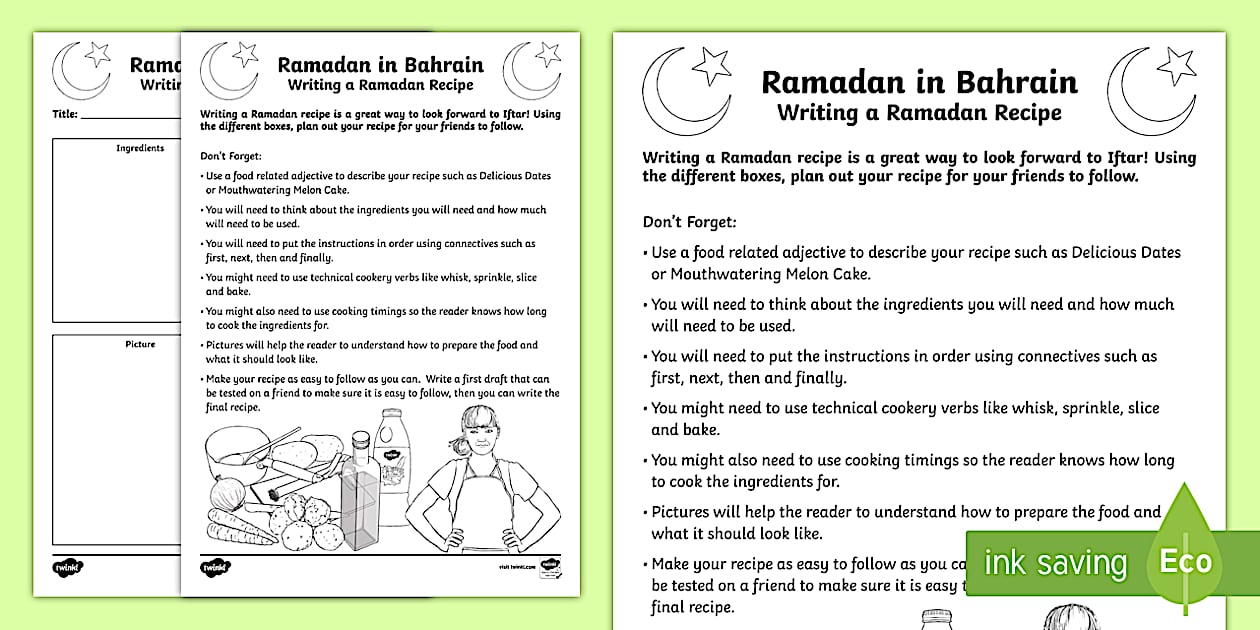 Rama
Writin
Title:
Ingredients
Picture
twinkl
Ramadan in Bahrain
Writing a Ramadan Recipe
Writing a Ramadan recipe is a great way to look forward to Iftar! Using
the different boxes, plan out your recipe for your friends to follow.
Don't Forget:
• Use a food related adjective to describe your recipe such as Delicious Dates
or Mouthwatering Melon Cake.
• You will need to think about the ingredients you will need and how much
will need to be used.
• You will need to put the instructions in order using connectives such as
first, next, then and finally.
• You might need to use technical cookery verbs like whisk, sprinkle, slice
and bake.
• You might also need to use cooking timings so the reader knows how long
to cook the ingredients for.
• Pictures will help the reader to understand how to prepare the food and
what it should look like.
• Make your recipe as easy to follow as you can. Write a first draft that can
be tested on a friend to make sure it is easy to follow, then you can write the
final recipe.
twinkl
visit twinkl.com
twinkl
Ramadan in Bahrain
Writing a Ramadan Recipe
Writing a Ramadan recipe is a great way to look forward to Iftar! Using
the different boxes, plan out your recipe for your friends to follow.
Don't Forget:
• Use a food related adjective to describe your recipe such as Delicious Dates
or Mouthwatering Melon Cake.
• You will need to think about the ingredients you will need and how much
will need to be used.
• You will need to put the instructions in order using connectives such as
first, next, then and finally.
• You might need to use technical cookery verbs like whisk, sprinkle, slice
and bake.
• You might also need to use cooking timings so the reader knows how long
to cook the ingredients for.
• Pictures will help the reader to understand how to prepare the food and
what it should look like.
• Make your recipe as easy to follow as you ca
be tested on a friend to make sure it is easy t
final recipe.
ink saving
Eco